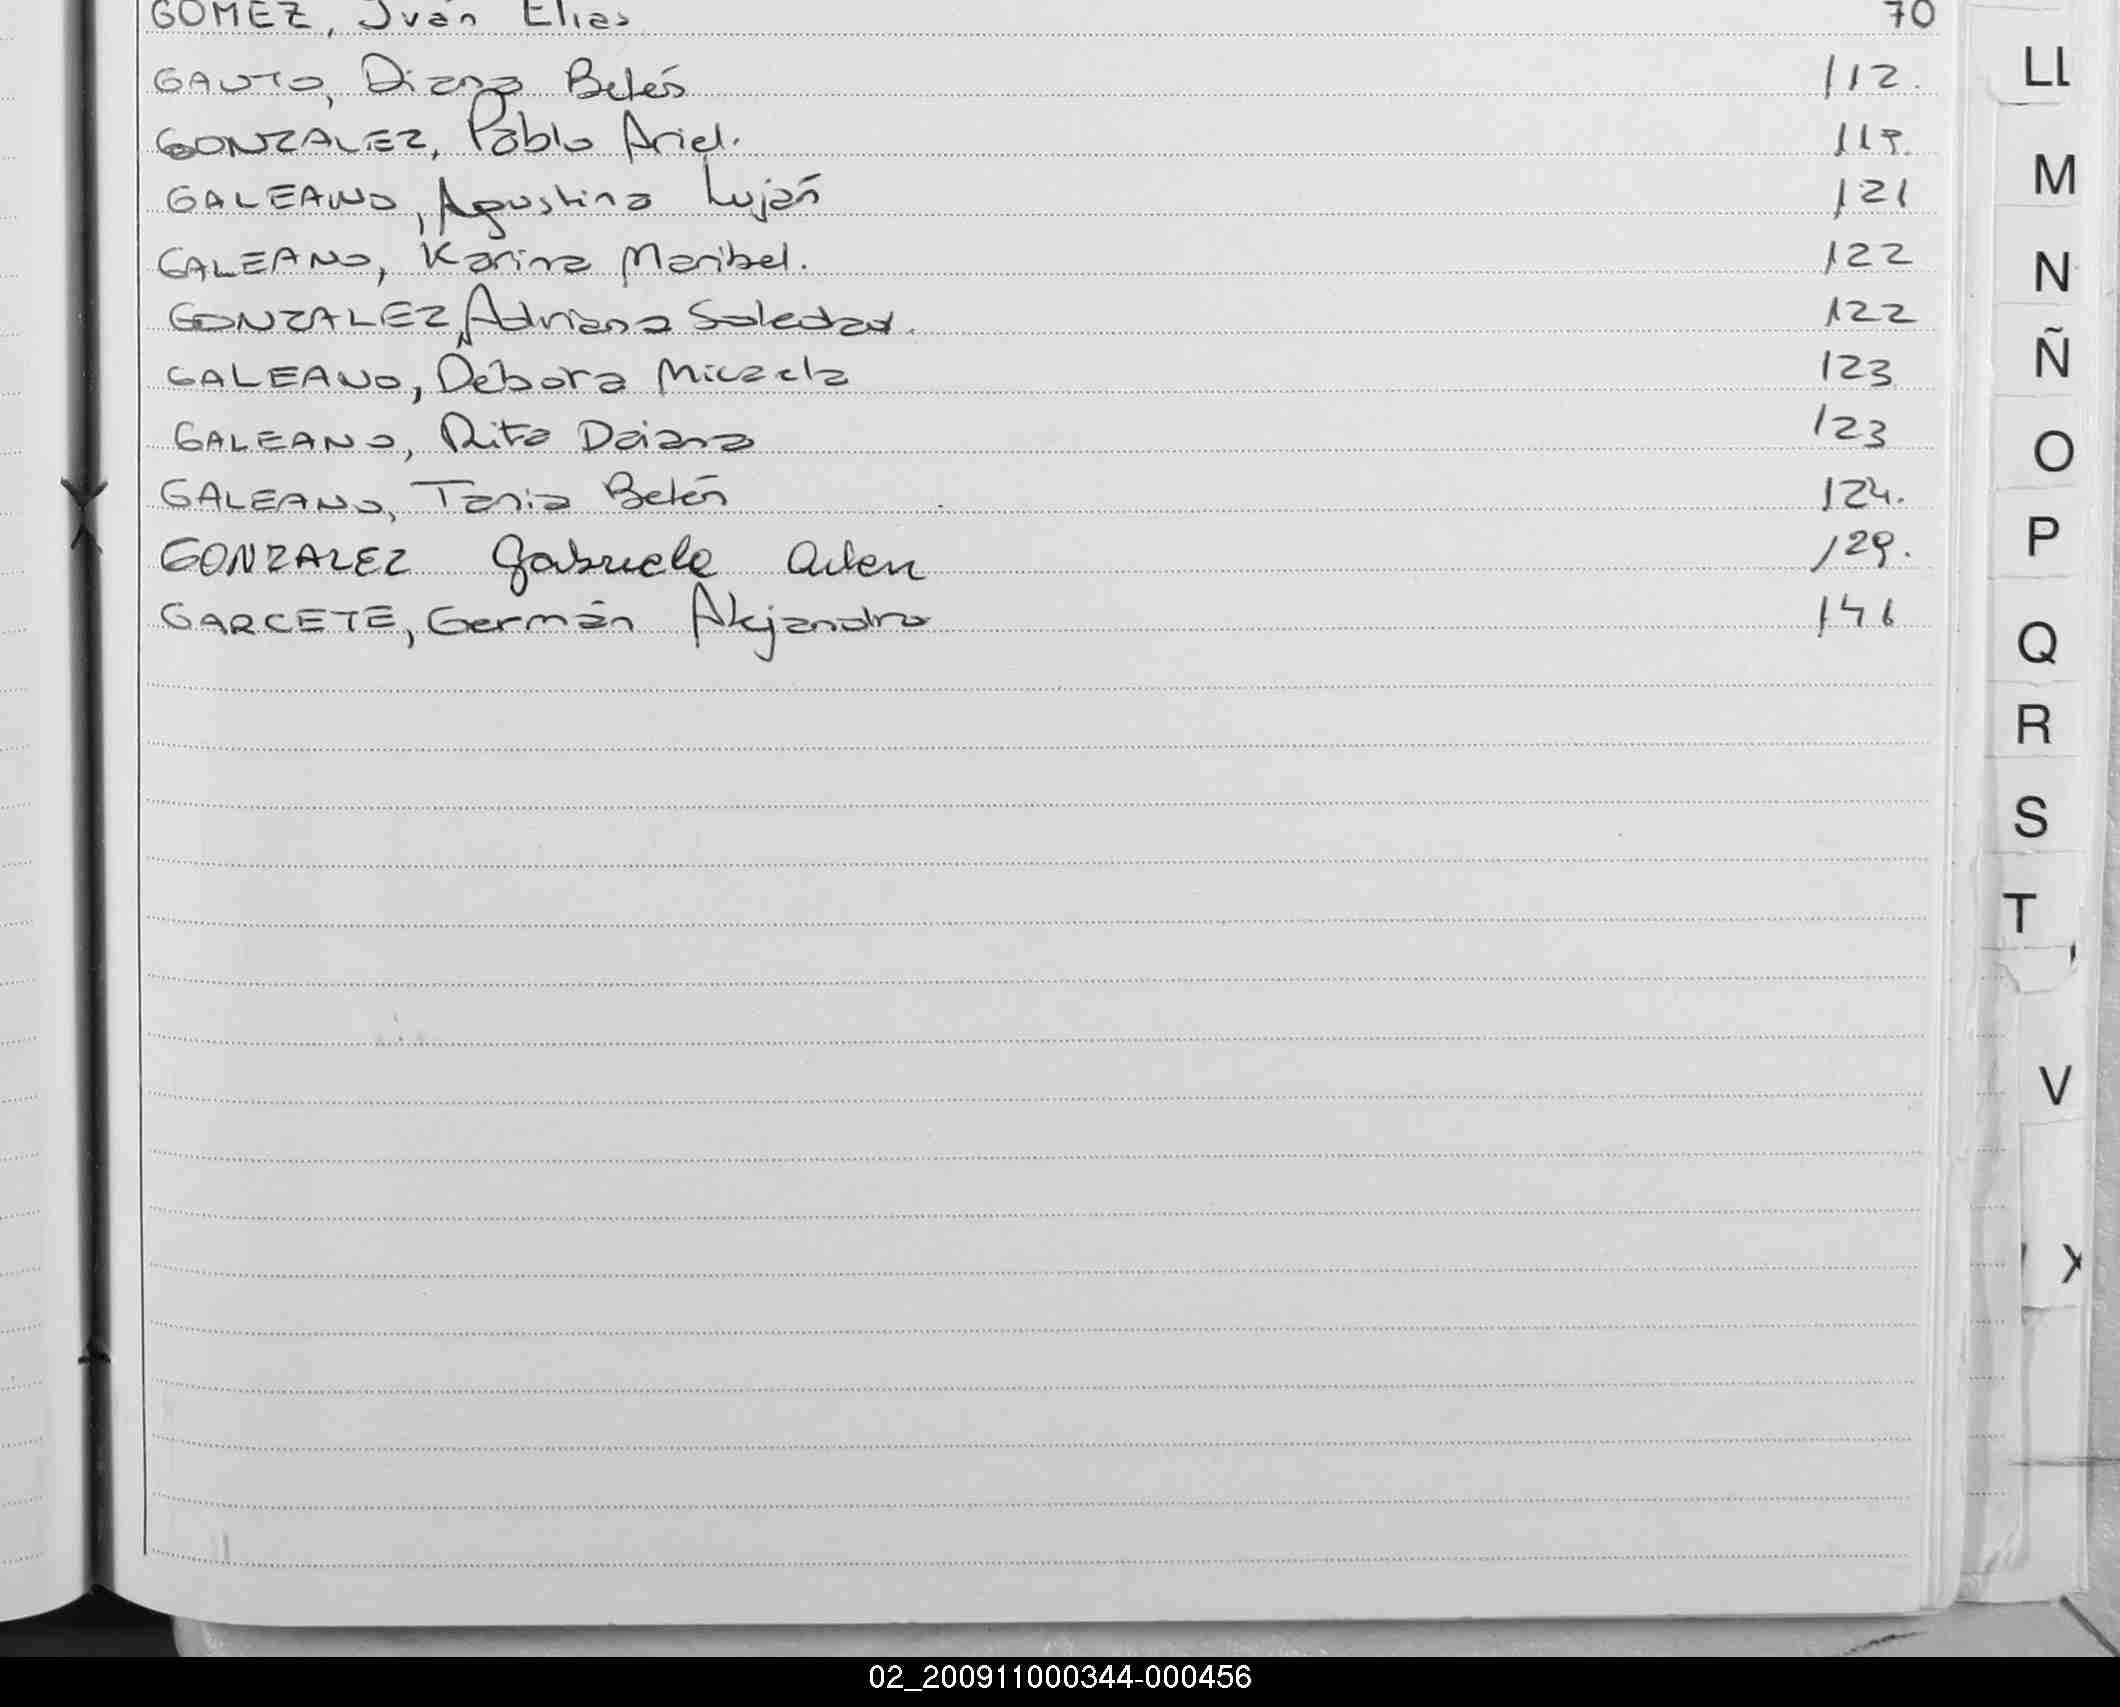 GOMEZ, Iván Elías 70
GAUTO, Diana Belén 112.
GONZALEZ, Pablo Ariel. 119.
GALEANO, Agustina Luján 121
GALEANO, Karina Maribel. 122
GONZALEZ, Adriana Soledad. 122
GALEANO, Débora Micaela 123
GALEANO, Rita Daiana 123
GALEANO, Tania Belén 124.
GONZALEZ Gabriela Ailen 129.
GARCETE, Germán Alejandro
Ll
M
N
Ñ
O
P
Q
R
S
T
V
X
02_200911000344-000456